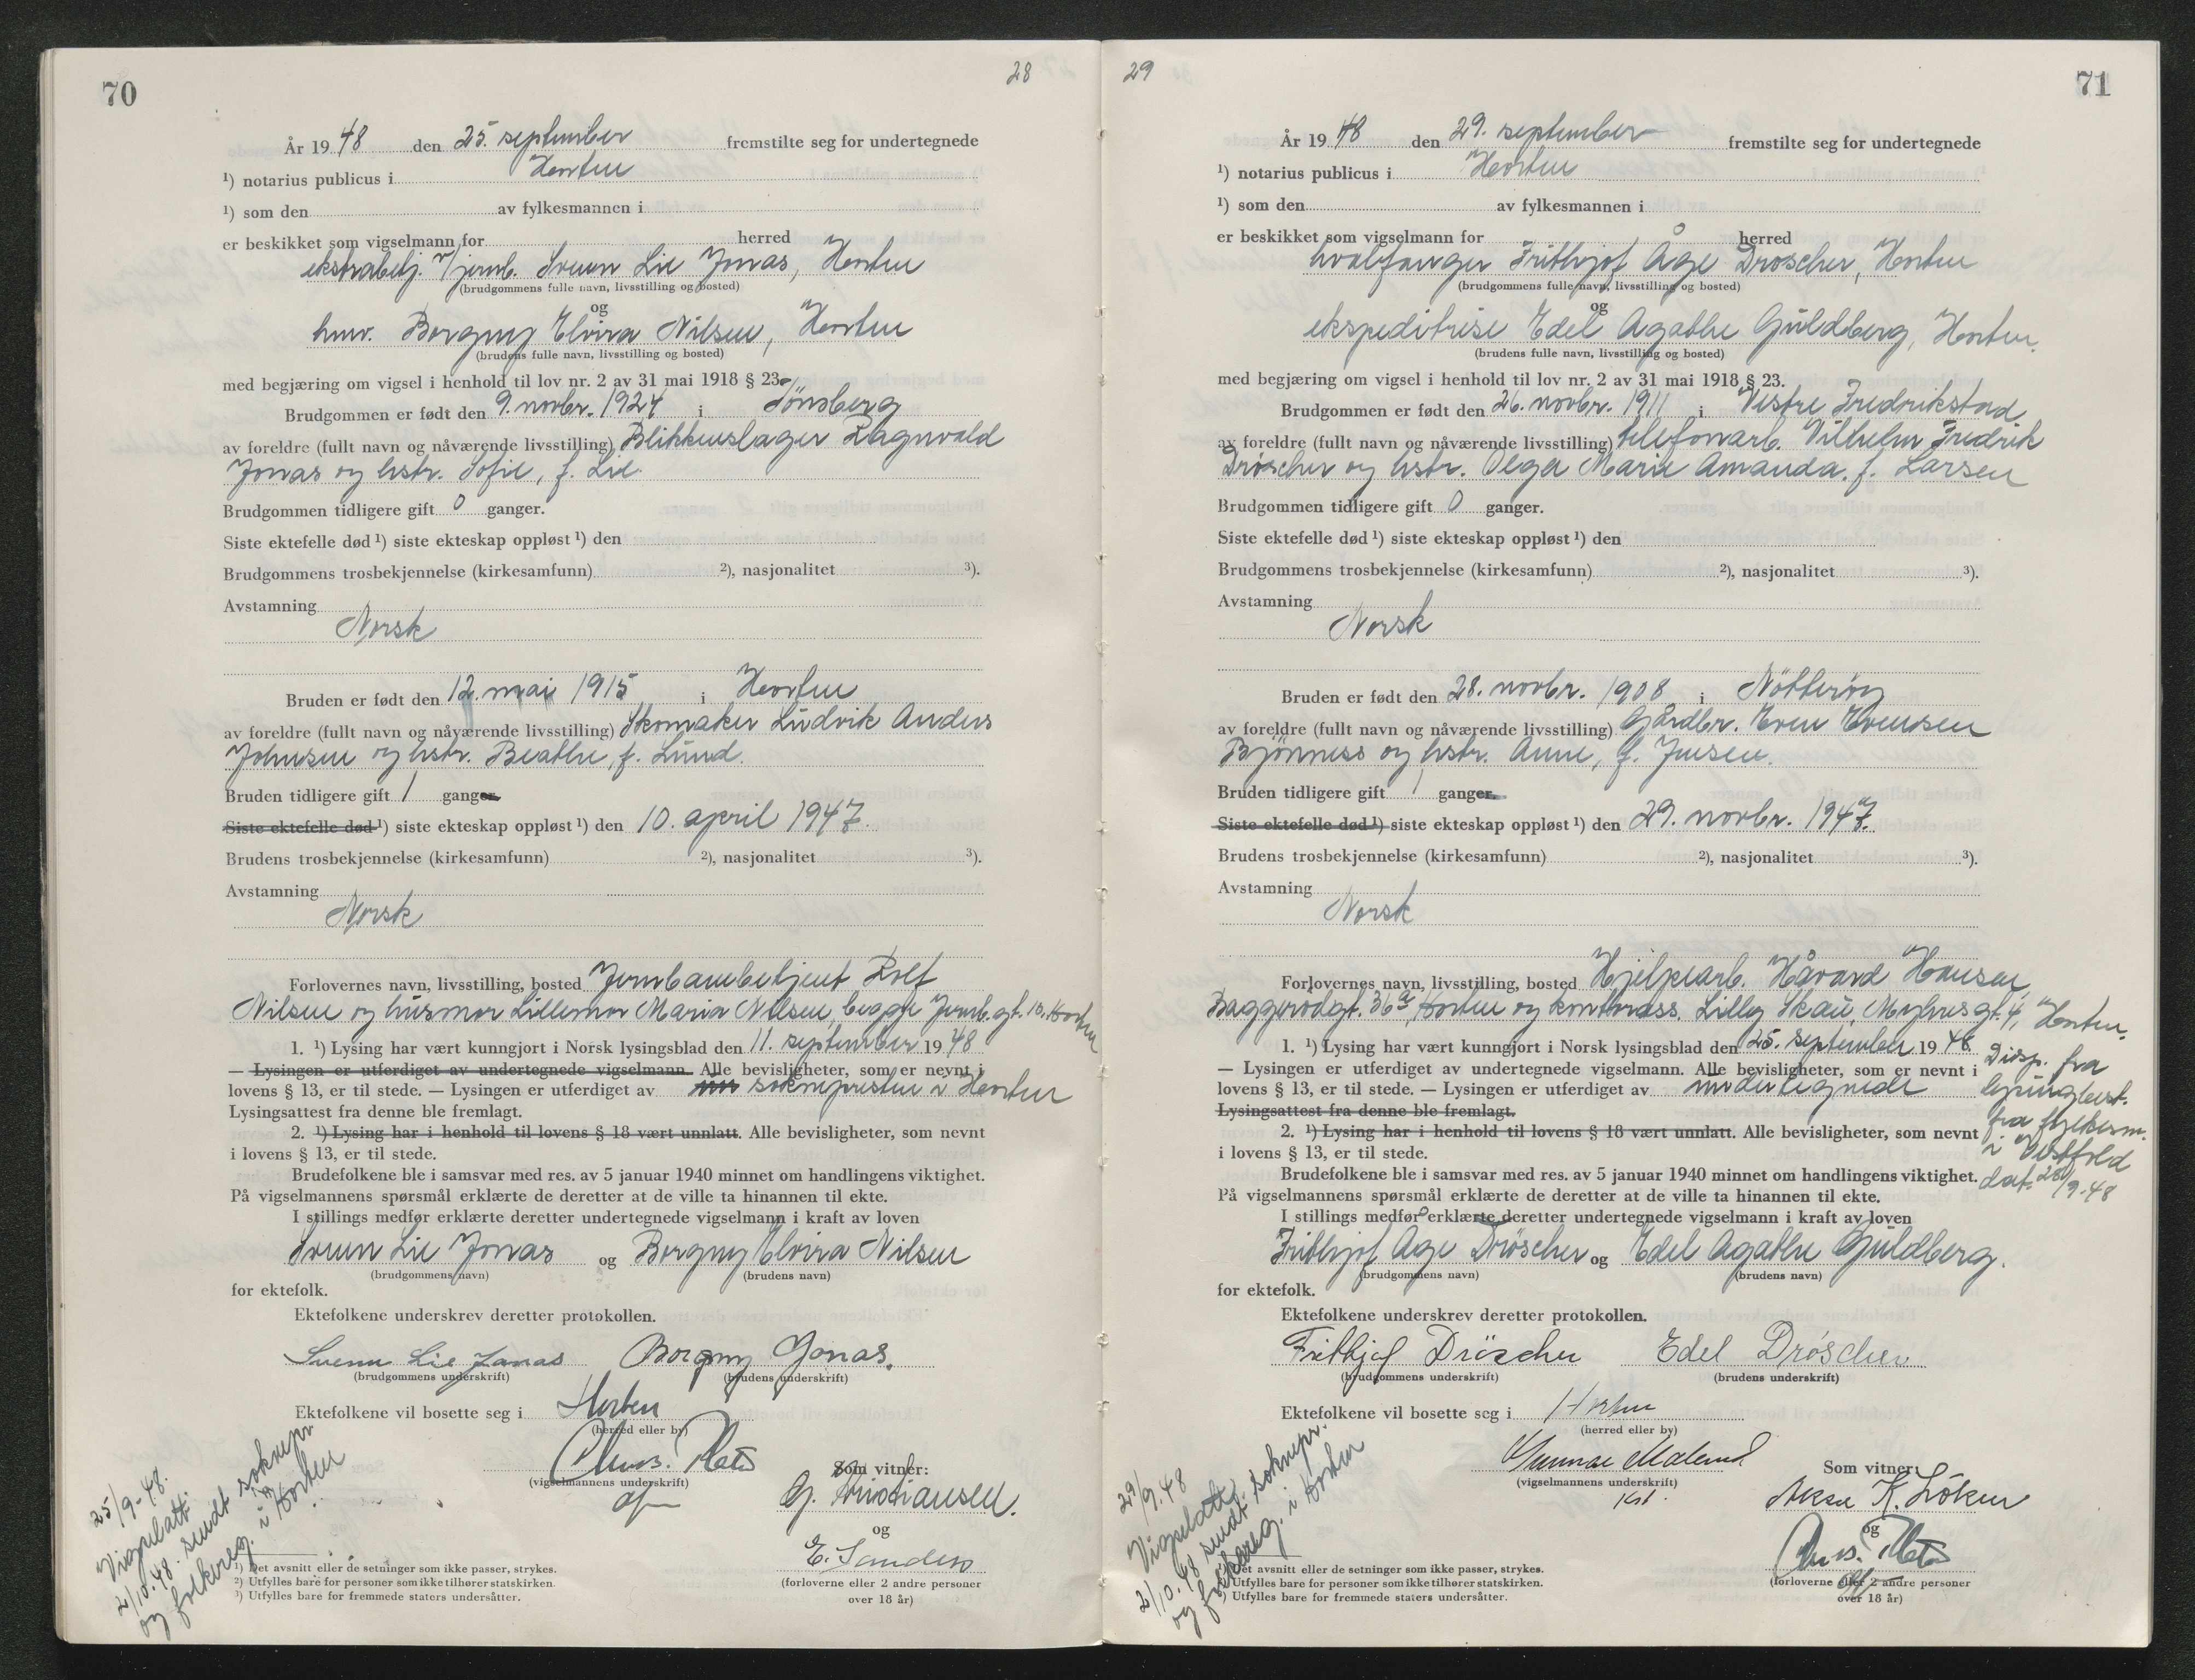 70
28
År 1948 den 25. september fremstilte seg for undertegnede
¹) notarius publicus i Horten
¹) som den av fylkesmannen i
er beskikket som vigselmann for herred
ekstrabetj. v/jernb. Svenn Lie Jonas, Horten
(brudgommens fulle navn, livsstilling og bosted)
og
hmv. Borgny Elvira Nilsen, Horten
(brudens fulle navn, livsstilling og bosted)
med begjæring om vigsel i henhold til lov nr. 2 av 31 mai 1918 § 23.
Brudgommen er født den 9. novbr. 1924 i Tönsberg
av foreldre (fullt navn og nåværende livsstilling) Blikkenslager Ragnvald
Jonas og hstr. Sofie, f. Lie.
Brudgommen tidligere gift 0 ganger.
Siste ektefelle død ¹) siste ekteskap oppløst ¹) den
Brudgommens trosbekjennelse (kirkesamfunn) ²), nasjonalitet ³).
Avstamning
Norsk
Bruden er født den 12. mai 1915 i Horten
av foreldre (fullt navn og nåværende livsstilling) Skomaker Ludvik Anders
Johnsen og hstr. Beathe, f. Lund.
Bruden tidligere gift 1 ganger.
Siste ektefelle død ¹) siste ekteskap oppløst ¹) den 10. april 1947.
Brudens trosbekjennelse (kirkesamfunn) ²), nasjonalitet ³).
Avstamning
Norsk
Forlovernes navn, livsstilling, bosted Jernbanebetjent Rolf
Nilsen og husmor Lillemor Maria Nilsen, begge Jernb.gt. 10. Horten
1. ¹) Lysing har vært kunngjort i Norsk lysingsblad den 11. september 1948
— Lysingen er utferdiget av undertegnede vigselmann. Alle bevisligheter, som er nevnt i
lovens § 13, er til stede. — Lysingen er utferdiget av soknepresten i Horten
Lysingsattest fra denne ble fremlagt.
2. ¹) Lysing har i henhold til lovens § 18 vært unnlatt. Alle bevisligheter, som nevnt
i lovens § 13, er til stede.
Brudefolkene ble i samsvar med res. av 5 januar 1940 minnet om handlingens viktighet.
På vigselmannens spørsmål erklærte de deretter at de ville ta hinannen til ekte.
I stillings medfør erklærte deretter undertegnede vigselmann i kraft av loven
Svenn Lie Jonas og Borgny Elvira Nilsen
(brudgommens navn) (brudens navn)
for ektefolk.
Ektefolkene underskrev deretter protokollen.
Svenn Lie Jonas Borgny Jonas.
(brudgommens underskrift) (brudens underskrift)
Ektefolkene vil bosette seg i Horten
(herred eller by)
(vigselmannens underskrift)
Som vitner:
G. Kristiansen.
og
E. Sanden
(forloverne eller 2 andre personer
over 18 år)
25/9-48.
Vigselatt.
2/10.48. sendt soknepr.
og folkereg. i Horten
¹) Det avsnitt eller de setninger som ikke passer, strykes.
²) Utfylles bare for personer som ikke tilhører statskirken.
³) Utfylles bare for fremmede staters undersåtter.
29
71
År 1948 den 29. september fremstilte seg for undertegnede
¹) notarius publicus i Horten
¹) som den av fylkesmannen i
er beskikket som vigselmann for herred
hvalfanger Frithjof Åge Dröscher, Horten
(brudgommens fulle navn, livsstilling og bosted)
og
ekspeditrise Edel Agathe Guldberg, Horten.
(brudens fulle navn, livsstilling og bosted)
med begjæring om vigsel i henhold til lov nr. 2 av 31 mai 1918 § 23.
Brudgommen er født den 26. novbr. 1911 i Vestre Fredrikstad
av foreldre (fullt navn og nåværende livsstilling) telefonarb. Vilhelm Fredrik
Dröscher og hstr. Olga Marie Amanda, f. Larsen
Brudgommen tidligere gift 0 ganger.
Siste ektefelle død ¹) siste ekteskap oppløst ¹) den
Brudgommens trosbekjennelse (kirkesamfunn) ²), nasjonalitet ³).
Avstamning
Norsk
Bruden er født den 28. novbr. 1908 i Nötteröy
av foreldre (fullt navn og nåværende livsstilling) Gårdbr. Even Evensen
Bjönness og hstr. Anne, f. Jensen.
Bruden tidligere gift 1 ganger.
Siste ektefelle død ¹) siste ekteskap oppløst ¹) den 29. novbr. 1947.
Brudens trosbekjennelse (kirkesamfunn) ²), nasjonalitet ³).
Avstamning
Norsk
Forlovernes navn, livsstilling, bosted Hjelpearb. Håvard Hansen,
Baggerödgt. 36a, Horten og kontorass. Lilly Skau, Myhresgt. 4, Horten.
1. ¹) Lysing har vært kunngjort i Norsk lysingsblad den 25. september 1948.
— Lysingen er utferdiget av undertegnede vigselmann. Alle bevisligheter, som er nevnt i
lovens § 13, er til stede. — Lysingen er utferdiget av undertegnede
Lysingsattest fra denne ble fremlagt.
2. ¹) Lysing har i henhold til lovens § 18 vært unnlatt. Alle bevisligheter, som nevnt
i lovens § 13, er til stede.
Brudefolkene ble i samsvar med res. av 5 januar 1940 minnet om handlingens viktighet.
På vigselmannens spørsmål erklærte de deretter at de ville ta hinannen til ekte.
I stillings medfør erklærte deretter undertegnede vigselmann i kraft av loven
Disp. fra
lysingbest.
fra fylkesm.
i Vestfold
dat. 28/9-48
Frithjof Åge Dröscher og Edel Agathe Guldberg.
(brudgommens navn) (brudens navn)
for ektefolk.
Ektefolkene underskrev deretter protokollen.
Frithjof Dröscher Edel Dröscher
(brudgommens underskrift) (brudens underskrift)
Ektefolkene vil bosette seg i Horten
(herred eller by)
Gunnar Malerud
(vigselmannens underskrift)
kst.
Som vitner:
K. Löken
og
(forloverne eller 2 andre personer
over 18 år)
29/9.48
Vigselatt.
2/10.48 sendt soknepr.
og folkereg. i Horten
¹) Det avsnitt eller de setninger som ikke passer, strykes.
²) Utfylles bare for personer som ikke tilhører statskirken.
³) Utfylles bare for fremmede staters undersåtter.